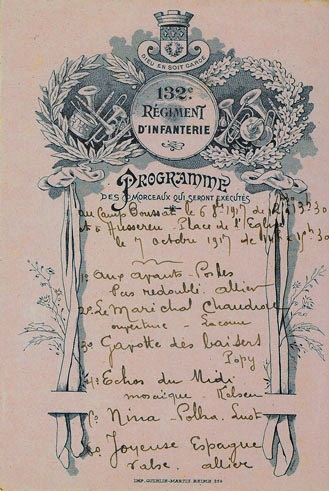 DIEU EN SOIT GARDE
132e
RÉGIMENT
D'INFANTERIE
PROGRAMME
DES MORCEAUX QUI SERONT EXÉCUTÉS
au Camp le 6 8bre 1917 de à 13h30
et à Place de l'Eglise
le 7 octobre 1917 de à
1º aux avants-Postes
Pas redoublé allier
2º Le Maréchal Chaudron
ouverture - Lacome
3º Gavotte des baisers
Popy
4º Echos du Midi
mosaïque - Kelsen
5º Nina - Polka
6º Joyeuse Espagne
valse. allier
IMP. GUIRLIN-MARTIN REIMS